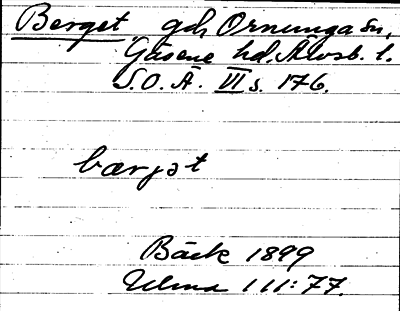 Berget gd, Ornunga sn,
Gäsene hd, Älvsb. l.
S.O.Ä. VI s. 176.
bærjət
Bäck 1899
111:77.